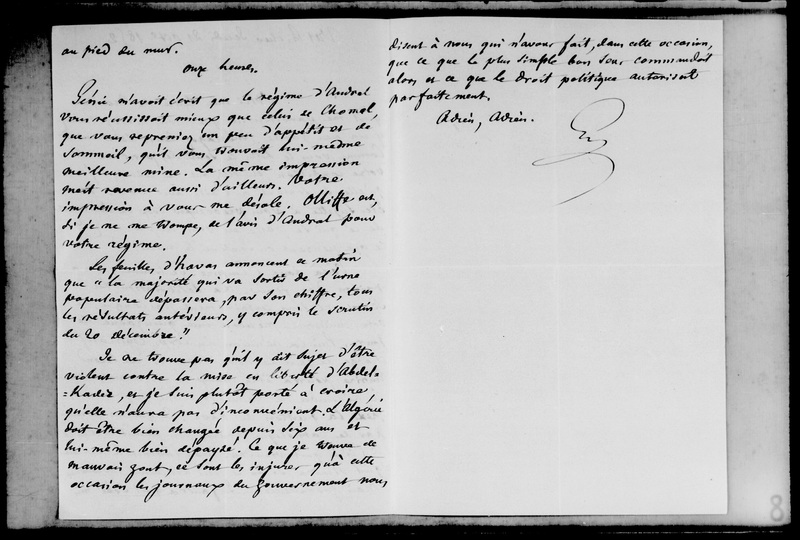 au pied du mur.
onze heures.
Génie m'avoit écrit que le régime d'Andral
vous réussissoit mieux que celui de Chomel,
que vous repreniez un peu d'appétit et de
sommeil, qu'il vous trouvoit lui-même
meilleure mine. La même impression
m'est revenue aussi d'ailleurs. Votre
impression à vous me désole. Olliffe est,
si je ne me trompe, de l'avis d'Andral pour
votre régime.
Les feuilles d'havas annoncent ce matin
que "la majorité qui va sortir de l'urne
populaire dépassera, par son chiffre, tous
les résultats antérieurs, y compris le scrutin
du 20 décembre."
Je ne trouve pas qu'il y ait sujet d'être
violent contre la mise en liberté d'Abdel-
=Kader, et je suis plutôt porté à croire
qu'elle n'aura pas d'inconvénient. L'Algérie
doit être bien changée depuis six ans et
lui-même bien dépaysé. Ce que je trouve de
mauvais gout, ce sont les injures qu'à cette
occasion les journaux du gouvernement nous
disent à nous qui n'avons fait, dans cette occasion,
que ce que le plus simple bon sens commandoit
alors et ce que le droit politique autorisoit
parfaitement.
Adieu, Adieu.
8